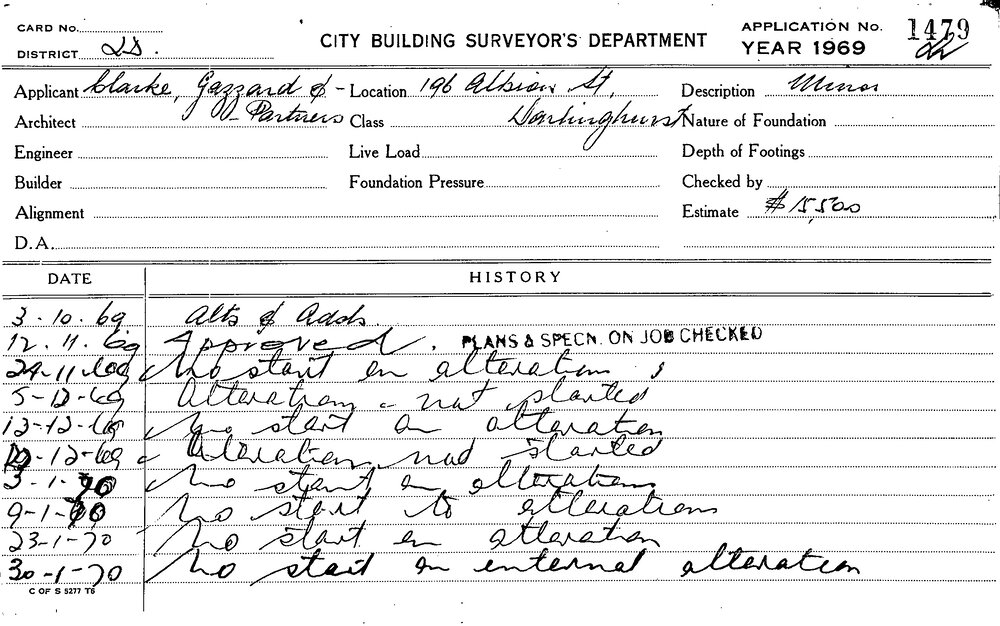 CARD No.
DISTRICT
CITY BUILDING SURVEYOR'S DEPARTMENT
APPLICATION No. 1479
YEAR 1969
Applicant Clarke, Gazzard & - Location 196 Albion St, Description Minor
Architect - Partners Class Darlinghurst Nature of Foundation
Engineer Live Load Depth of Footings
Builder Foundation Pressure Checked by
Alignment Estimate $15,500
D.A.
DATE HISTORY
3-10-69 Alts & Adds
12.11.69 Approved. PLANS & SPECN. ON JOB CHECKED
24-11-69 No start on alterations
5-12-69 Alterations - not started
12-12-69 No start on alteration
-12-69 Alterations not started
5-1-70 No start on alterations
9-1-70 No start to alterations
23-1-70 No start on alteration
30-1-70 No start on internal alteration
C OF S 5277 T6